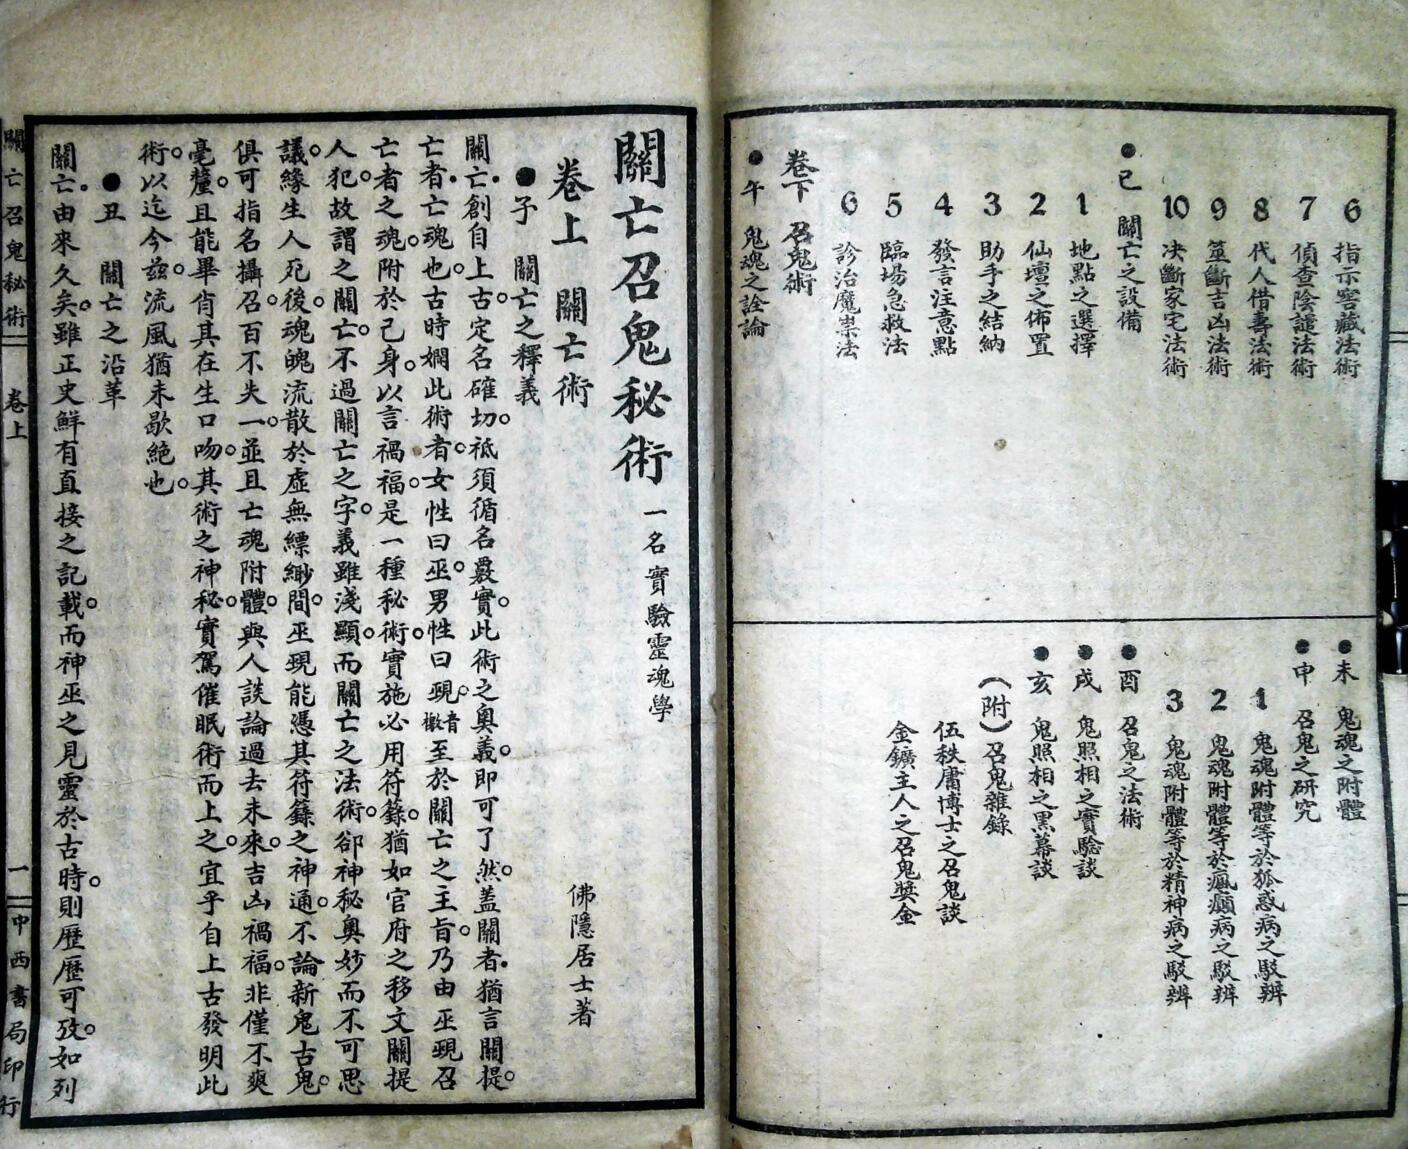 6 指示窖藏法術
7 偵查陰譴法術
8 代人借壽法術
9 筮斷吉凶法術
10 决斷家宅法術
●已 關亡之設備
1 地點之選擇
2 仙壇之佈置
3 助手之結納
4 發言注意點
5 臨場急救法
6 診治魔祟法
卷下 召鬼術
●午 鬼魂之詮論
●未 鬼魂之附體
●申 召鬼之研究
1 鬼魂附體等於狐惑病之駁辨
2 鬼魂附體等於瘋癲病之駁辨
3 鬼魂附體等於精神病之駁辨
●酉 召鬼之法術
●戌 鬼照相之實驗談
●亥 鬼照相之黑幕談
(附)召鬼雜錄
伍秩庸博士之召鬼談
金鑛主人之召鬼奬金
關亡召鬼秘術 一名實驗靈魂學
卷上 關亡術 佛隱居士著
●子 關亡之釋義
關亡創自上古。定名確切。祇須循名覈實。此術之奥義。即可了然。蓋關者。猶言關提。
亡者。亡魂也。古時嫻此術者。女性曰巫。男性曰覡。音檄至於關亡之主旨。乃由巫覡召
亡者之魂。附於己身。以言禍福。是一種秘術。實施必用符籙。猶如官府之移文關提
人犯。故謂之關亡。不過關亡之字義。雖淺顯。而關亡之法術。郤神秘奥妙而不可思
議。緣生人死後。魂魄流散於虛無縹緲間。巫覡能憑其符籙之神通。不論新鬼古鬼。
俱可指名攝召。百不失一。並且亡魂附體。與人談論過去未來。吉凶禍福。非僅不爽
毫釐。且能畢肖其在生口吻。其術之神秘。實駕催眠術而上之。宜乎自上古發明此
術。以迄今兹。流風猶未歇絕也。
●丑 關亡之沿革
關亡由來久矣。雖正史鮮有直接之記載。而神巫之見靈於古時。則歷歷可攷。如列
關亡召鬼秘術 卷上 一 中西書局印行